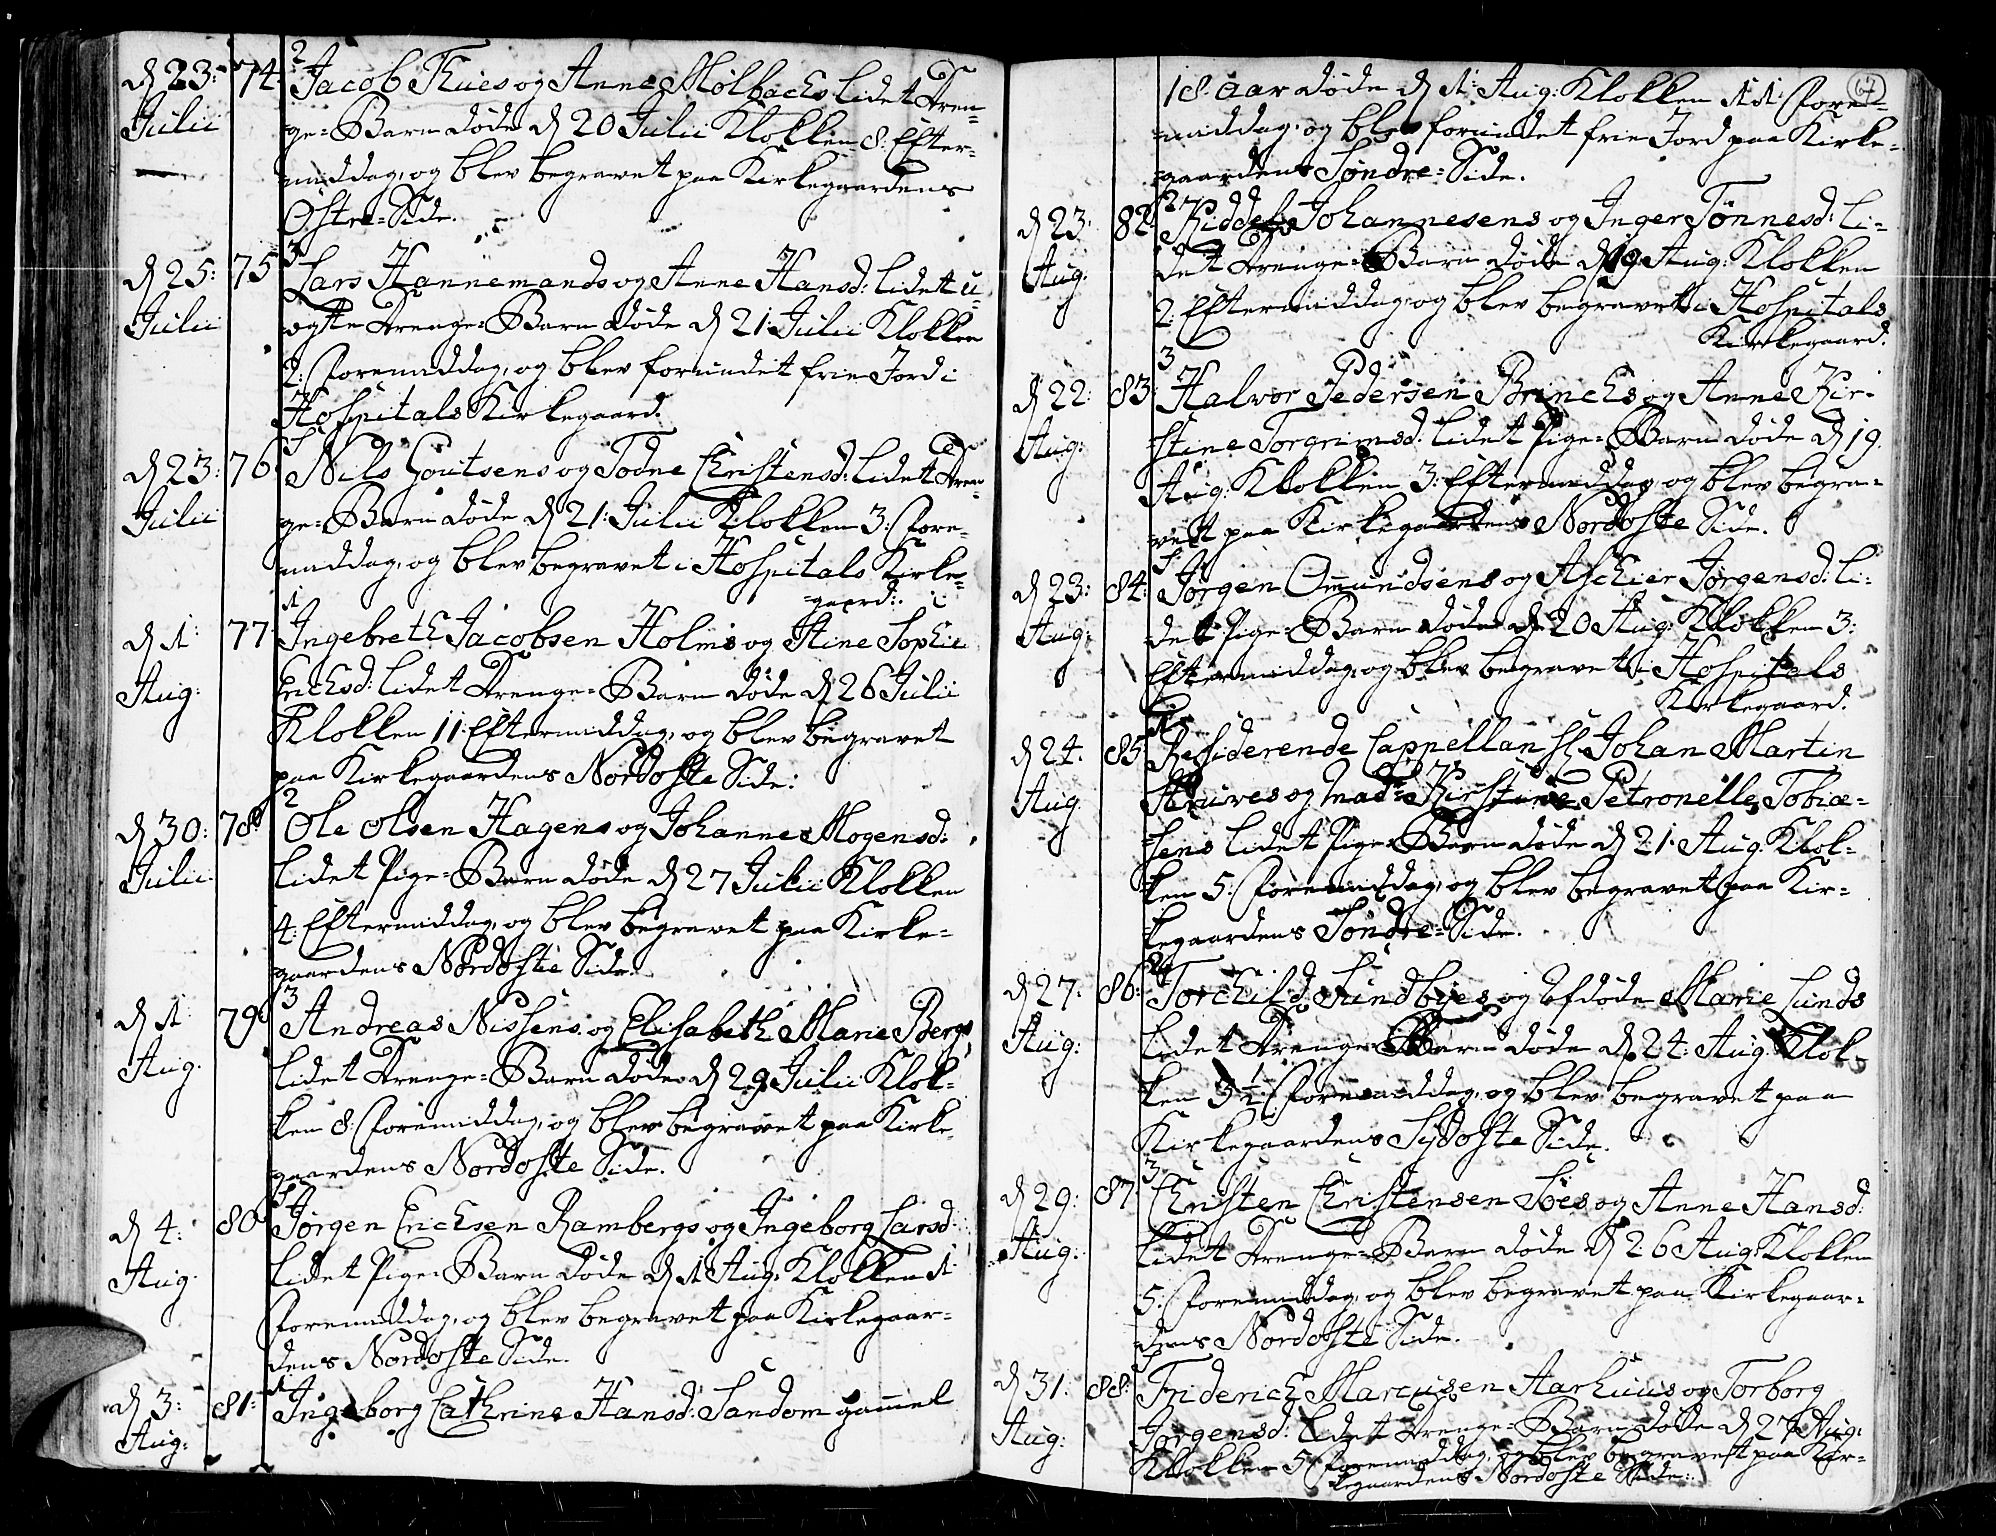 d 23: 74. 2 Jacob Thues og Anne Mølbachs lidet Dren-
Julii ge-Barn døde d 20 Julii Klokken 8: Efter-
middag, og blev begravet paa Kirkegaardens
Østre-Side.
d 25: 75 3 Lars Hannemands og Anne Hansd: lidet u-
Julii ægte Drenge-Barn døde d 21 Julii Klokken
2: Formiddag, og blev forundet frie Jord i
Hospitals Kirkegaard.
d 23: 76. Nils Goutsens og Todne Christensd: lidet Dren-
Julii ge-Barn døde d 21: Julii Klokken 3: For-
middag, og blev begravet i Hospitals Kirke-
gaard:
d 1: 77. 1 Ingebreth Jacobsen Holms og Stine Sophie
Aug: Erichsd: lidet Drenge-Barn døde d 26 Julii
Klokken 11: Eftermiddag, og blev begravet
paa Kirkegaardens Nordoste Side:
d 30: 78 2 Ole Olsen Hagens og Johanne Mogensd:
Julii lidet Pige-Barn døde d 27 Julii Klokken
4: Eftermiddag, og blev begravet paa Kirke-
gaardens Nordoste Side.
d 1: 79 3 Andreas Nissens og Elisabeth Marie Bergs
Aug. lidet Drenge-Barn døde d 29 Julii Klok-
ken 8: Formiddag, og blev begravet paa Kirke-
gaardens Nordoste Side.
d 4: 80 Jørgen Erichsen Rambergs og Ingeborg Larsd:
Aug. lidet Pige-Barn døde d 1 Aug: Klokken 1:
Formiddag, og blev begravet paa Kirkegaar-
dens Nordoste Side.
d 3: 81: 1 Ingeborg Cathrine Hansd: Sandom gammel
Aug:
67
18. aar døde d 1: Aug: Klokken 11: For-
middag, og blev forundet frie Jord paa Kirke-
gaardens Søndre-Side.
d 23: 82. 2 Johannesens og Inger Tønnesd: li-
Aug. det Drenge-Barn døde d 19 Aug: Klokken
2: Eftermiddag, og blev begravet i Hospitals
Kirkegaard.
d 22: 83: 3 Halvor Pedersen Brinchs og Anne Kir-
Aug: stine Torgrimsd: lidet Pige-Barn døde d 19.
Aug: Klokken 3: Eftermiddag, og blev begra-
vet paa Kirkegaardens Nordoste Side.
d 23: 84: Jørgen Omundsens og Aschier Jørgensd: li-
Aug: det Pige-Barn døde d 20 Aug: Klokken 3:
Eftermiddag, og blev begravet i Hospitals
Kirkegaard.
d 24: 85 1 Residerende Cappellan Hr Johan Martin
Aug. og Mad: Kirstine Petronelle Tobiæ-
sens lidet Pige-Barn døde d 21: Aug. Klok-
ken 5: Formiddag, og blev begravet paa Kir-
kegaardens Søndre-Side.
d 27: 86: 2 Torchild Sundbyes og Afdøde Marie Lunds
Aug: lidet Drenge-Barn døde d 24: Aug: Klok-
ken 3½: Formiddag, og blev begravet paa
Kirkegaardens Sydoste Side.
d 29: 87. 3 Christen Christensen Søes og Anne Hansd:
Aug: lidet Drenge-Barn døde d 26 Aug: Klokken
5: Formiddag, og blev begravet paa Kirkegaar-
dens Nordoste Side.
d 31. 88: Friderich Marcusen Aarhuus og Torborg
Aug: Jørgensd: lidet Drenge-Barn døde d 27 Aug:
Klokken 5 Formiddag, og blev begravet paa Kir-
kegaardens Nordoste Side.